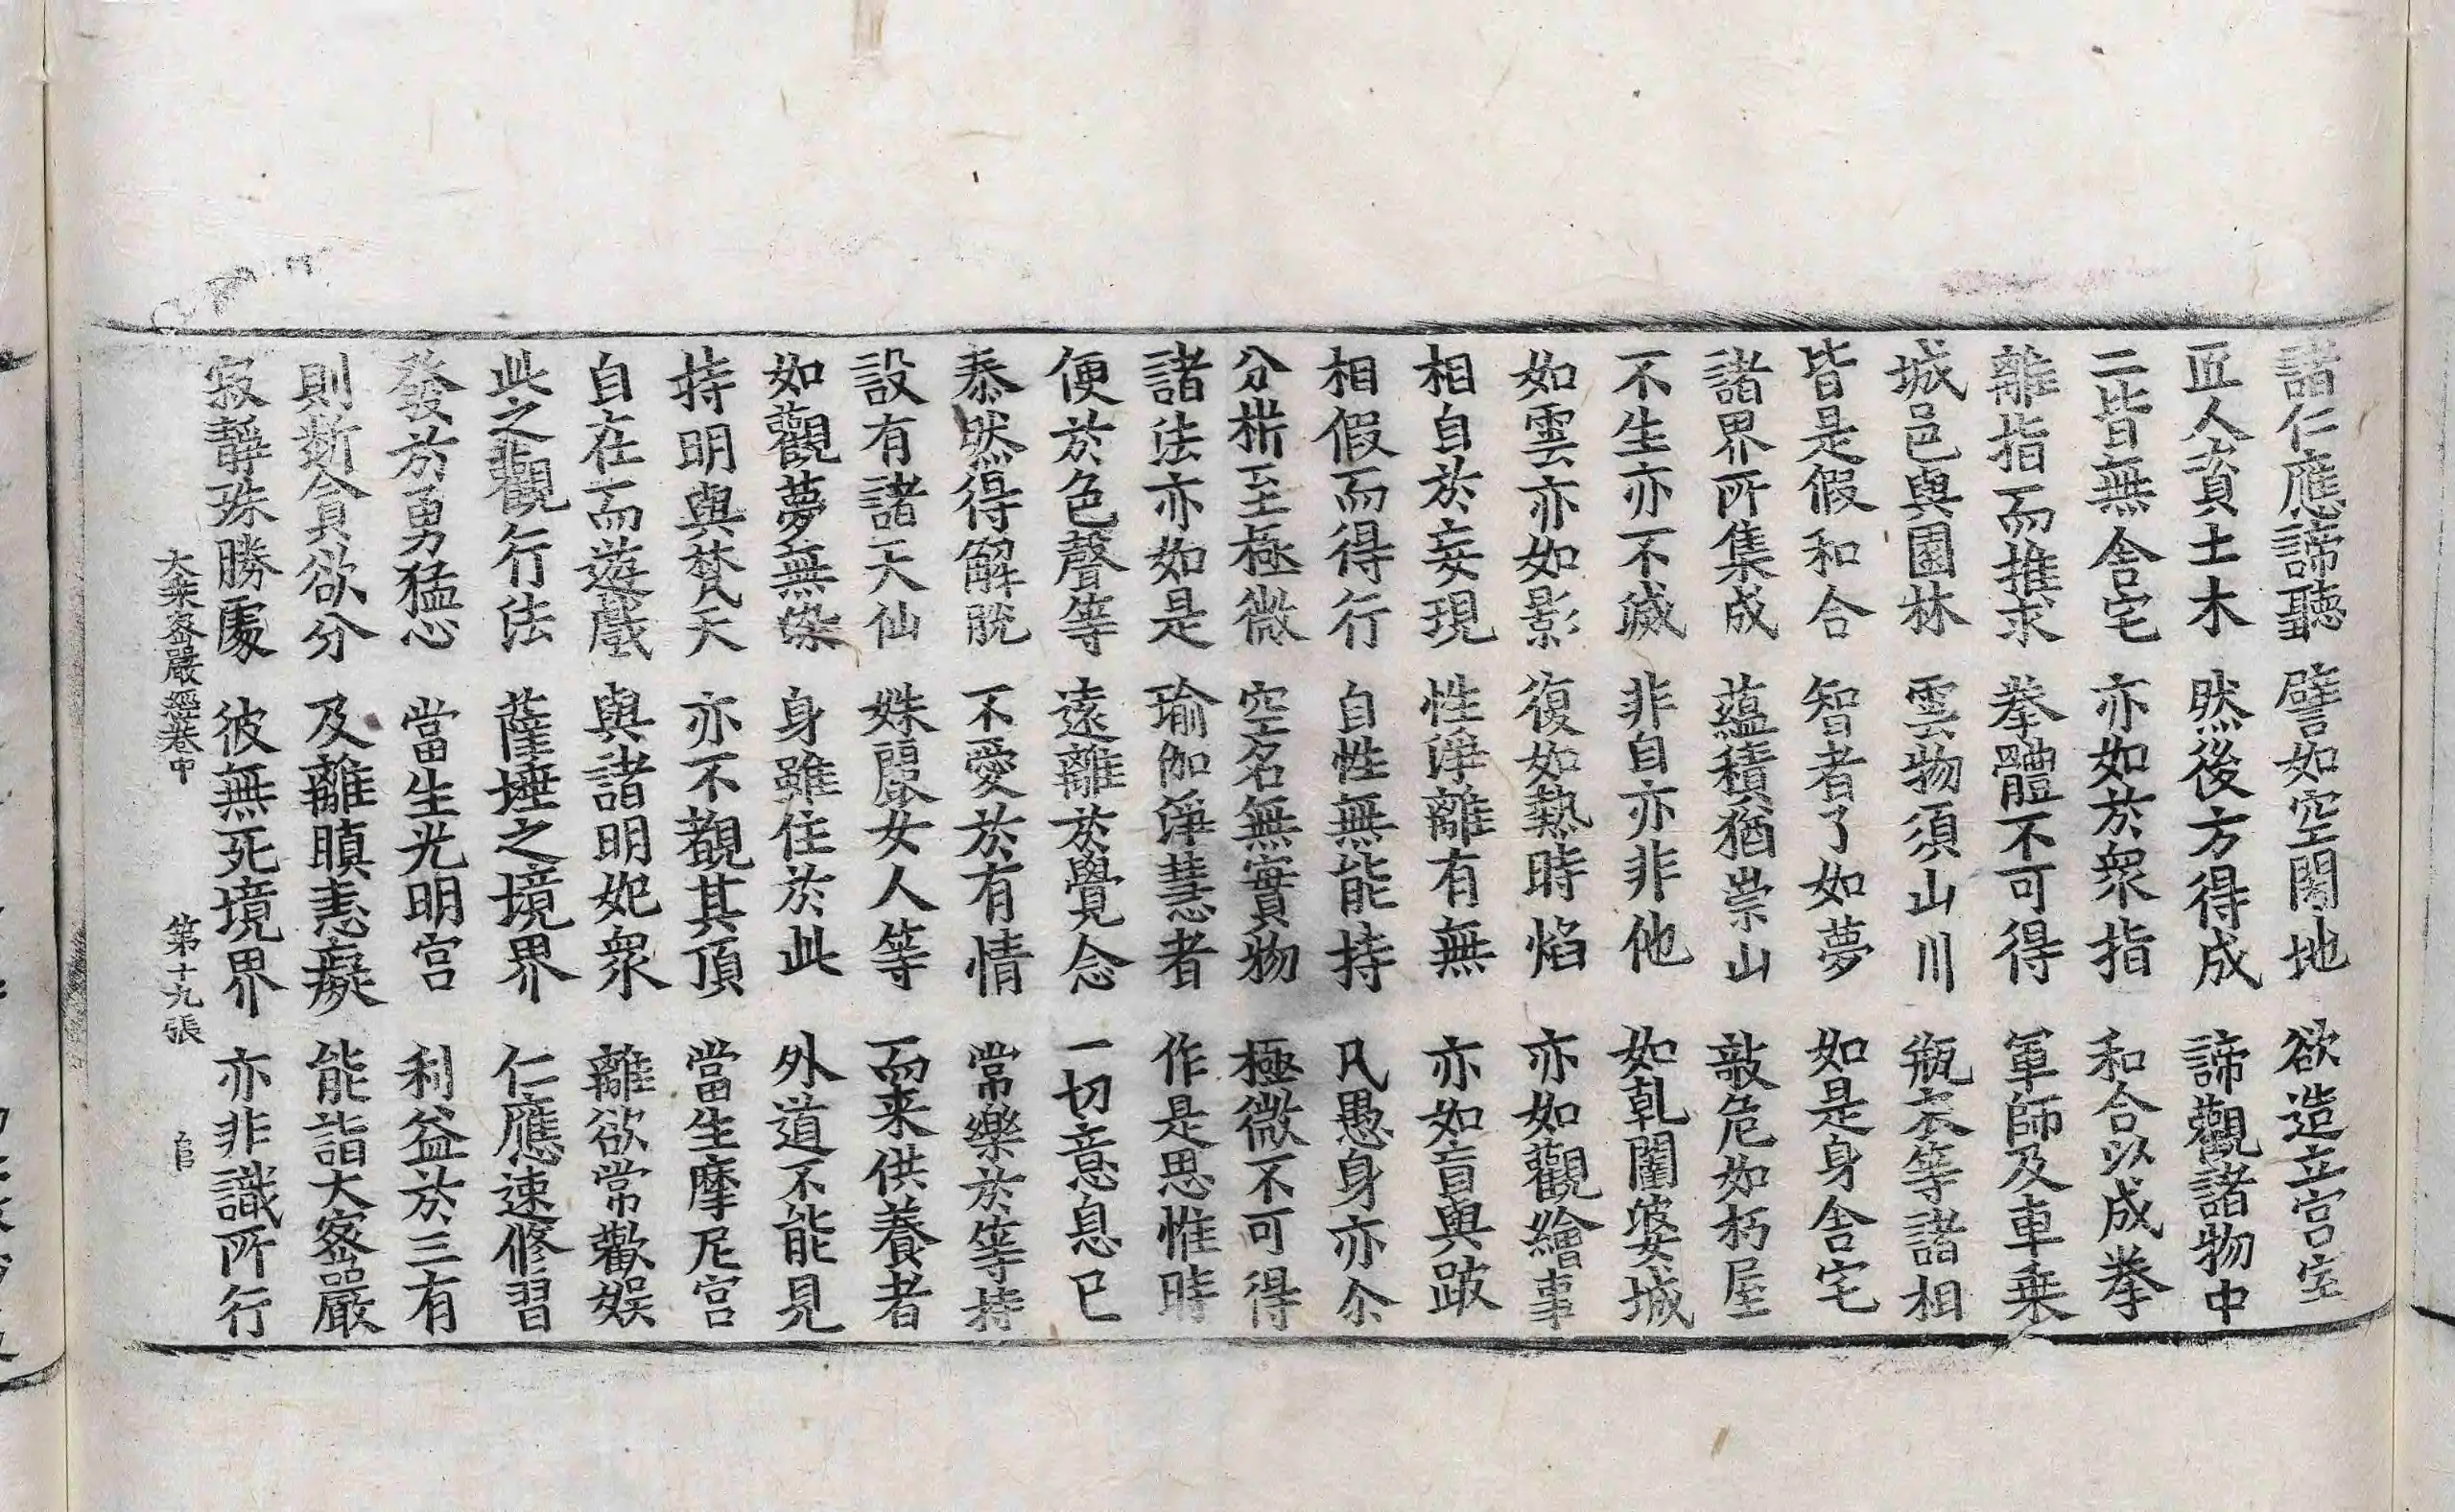 諸仁應諦聽 譬如空閑地 欲造立宮室
匠人資土木 然後方得成 諦觀諸物中
二皆無舍宅 亦如於衆指 和合以成拳
離指而推求 拳體不可得 軍師及車乗
城邑與園林 雲物須山川 瓶衣等諸相
皆是假和合 智者了如夢 如是身舍宅
諸界所集成 蘊積猶崇山 敲危如朽屋
不生亦不滅 非自亦非他 如乹闥婆城
如雲亦如影 復如熱時焰 亦如觀繪事
相自於妄現 性淨離有無 亦如盲與跛
相假而得行 自性無能持 凡愚身亦尒
分枿至極微 空名無實物 極微不可得
諸法亦如是 瑜伽淨慧者 作是思惟時
便於色聲等 遠離於覺念 一切意息已
泰然得解脫 不愛於有情 常樂於等持
設有諸天仙 姝麗女人等 而来供養者
如觀夢無染 身雖住於此 外道不能見
持明與梵天 亦不觀其頂 當生摩尼宮
自在而遊戲 與諸明妃衆 離欲常歡娱
此之觀行法 薩埵之境界 仁應速修習
發於勇猛心 當生光明宮 利益於三有
則斷貪欲分 及離瞋恚癡 能詣大密嚴
寂靜殊勝處 彼無死境界 亦非識所行
大乗密嚴經卷中 第十九張